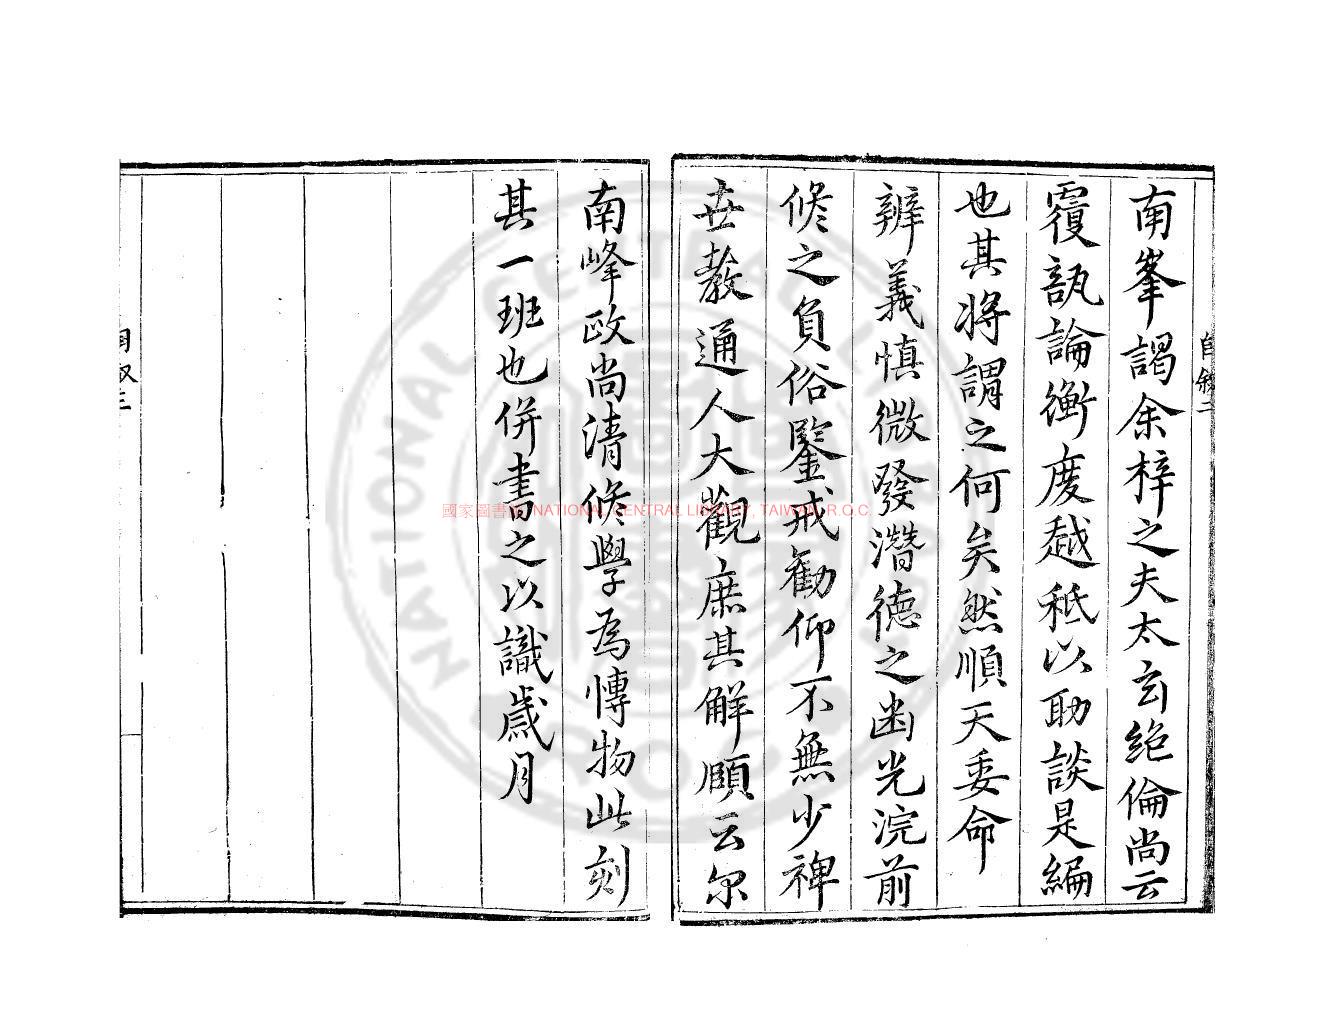 南峯謁余梓之夫太玄絶倫尚云
覆瓿論衡度越秪以助談是編
也其将謂之何矣然順天委命
辨義慎微發潛德之幽光浣前
修之負俗鑒戒勸仰不無少裨
世教通人大觀庶其解頤云尔
南峰政尚清修學為愽物此刻
其一班也併書之以識歲月
自叙二
自叙三
國家圖書館 NATIONAL CENTRAL LIBRARY, TAIWAN, R.O.C.